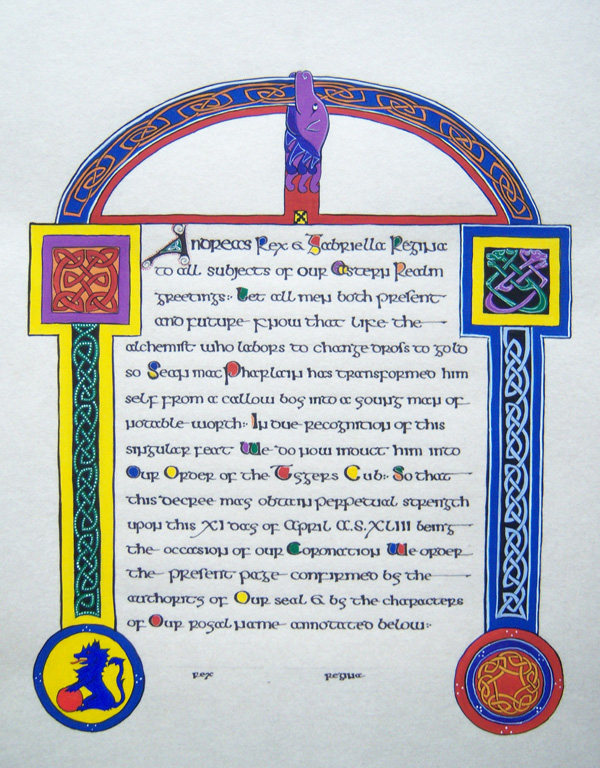 Andreas Rex & Gabriella Regina
to all subjects of our Eastern Realm
greetings:. Let all men both present
and future know that like the
alchemist who labors to change dross to gold
so Sean mac Pharlain has transformed him
self from a callow boy into a young man of
notable worth:. In due recognition of this
singular feat We do now induct him into
Our Order of the Tygers Cub:. So that
this decree may obtain perpetual strength
upon this XI day of April A.S.XLIII being
the occasion of our Coronation We order
the present page confirmed by the
authority of Our seal & by the characters
of Our royal name annotated below:.
rex regina